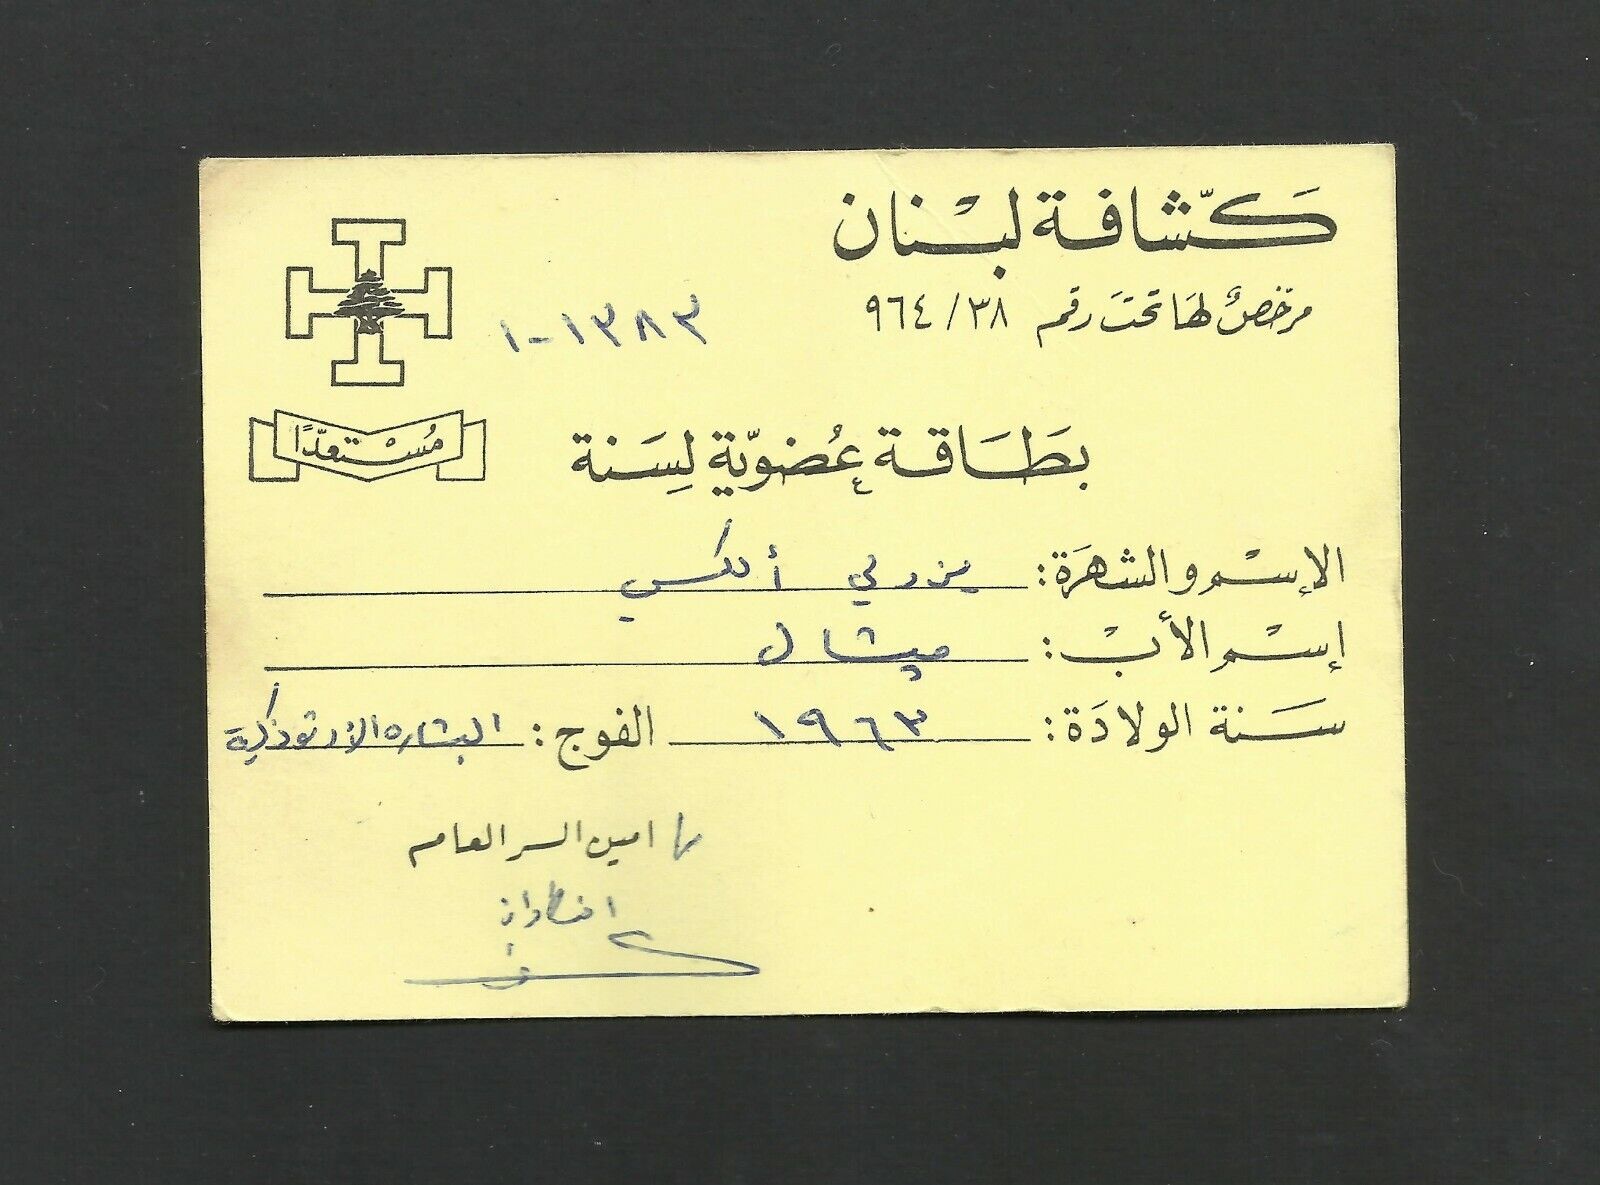 كشّافة لبنان
مرخصٌ لها تحت رقم ٣٨/٩٦٤
١-١٣٨٣
مُستعدًّا
بطَاقة عُضويّة لِسَنة
الإسم والشهرَة: أليكسي
إسم الأب: ميشال
سَنة الولادَة: ١٩٦٣ الفوج: البشاره الأرثوذكية
امين السر العام